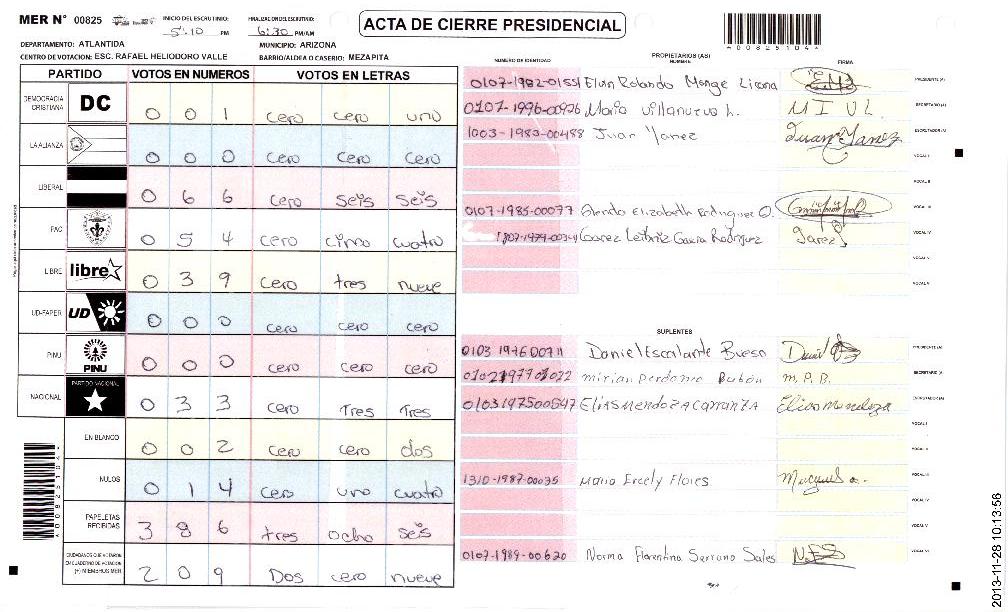 MER N° 00825
INICIO DEL ESCRUTINIO: 5:10 PM
FINALIZACION DEL ESCRUTINIO: 6:30 PM/AM
ACTA DE CIERRE PRESIDENCIAL
A00825104
DEPARTAMENTO: ATLANTIDA
MUNICIPIO: ARIZONA
CENTRO DE VOTACION: ESC. RAFAEL HELIODORO VALLE
BARRIO/ALDEA O CASERIO: MEZAPITA
PARTIDO VOTOS EN NUMEROS VOTOS EN LETRAS
DEMOCRACIA CRISTIANA DC 0 0 1 cero cero uno
LA ALIANZA 0 0 0 cero cero cero
LIBERAL 0 6 6 cero seis seis
PAC 0 5 4 cero cinco cuatro
LIBRE libre 0 3 9 cero tres nueve
UD-FAPER UD 0 0 0 cero cero cero
PINU PINU 0 0 0 cero cero cero
NACIONAL PARTIDO NACIONAL 0 3 3 cero Tres Tres
EN BLANCO 0 0 2 cero cero dos
NULOS 0 1 4 cero uno cuatro
PAPELETAS RECIBIDAS 3 8 6 tres ocho seis
CIUDADANOS QUE VOTARON EN CUADERNO DE VOTACION (+) MIEMBROS MER 2 0 9 Dos cero nueve
A00825104
NUMERO DE IDENTIDAD
PROPIETARIOS (AS)
NOMBRE
FIRMA
0107-1982-01551 Elvin Rolando Monge Licona PRESIDENTE (A)
0107-1996-00976 Mario Villanueva L. M I V L. SECRETARIO (A)
1003-1983-00488 Juan Yanez Juan Yanez ESCRUTADOR (A)
VOCAL I
VOCAL II
0107-1985-00077 Glenda Elizabeth Rodriguez O. VOCAL III
1807-1979-0034 Garez Leibniz Garcia Rodriguez Garez VOCAL IV
VOCAL V
VOCAL VI
SUPLENTES
0103 1976 00711 Daniel Escalante Bueso PRESIDENTE (A)
mirian perdomo Bubón m. P. B. SECRETARIO (A)
0103197500547 Elias Mendoza Carranza Elias Mendoza ESCRUTADOR (A)
VOCAL I
VOCAL II
1310-1987-00035 Maria Ercely Flores VOCAL III
VOCAL IV
VOCAL V
0107-1989-00620 Norma Florentina Serrano Sales VOCAL VI
2013-11-28 10:13:56